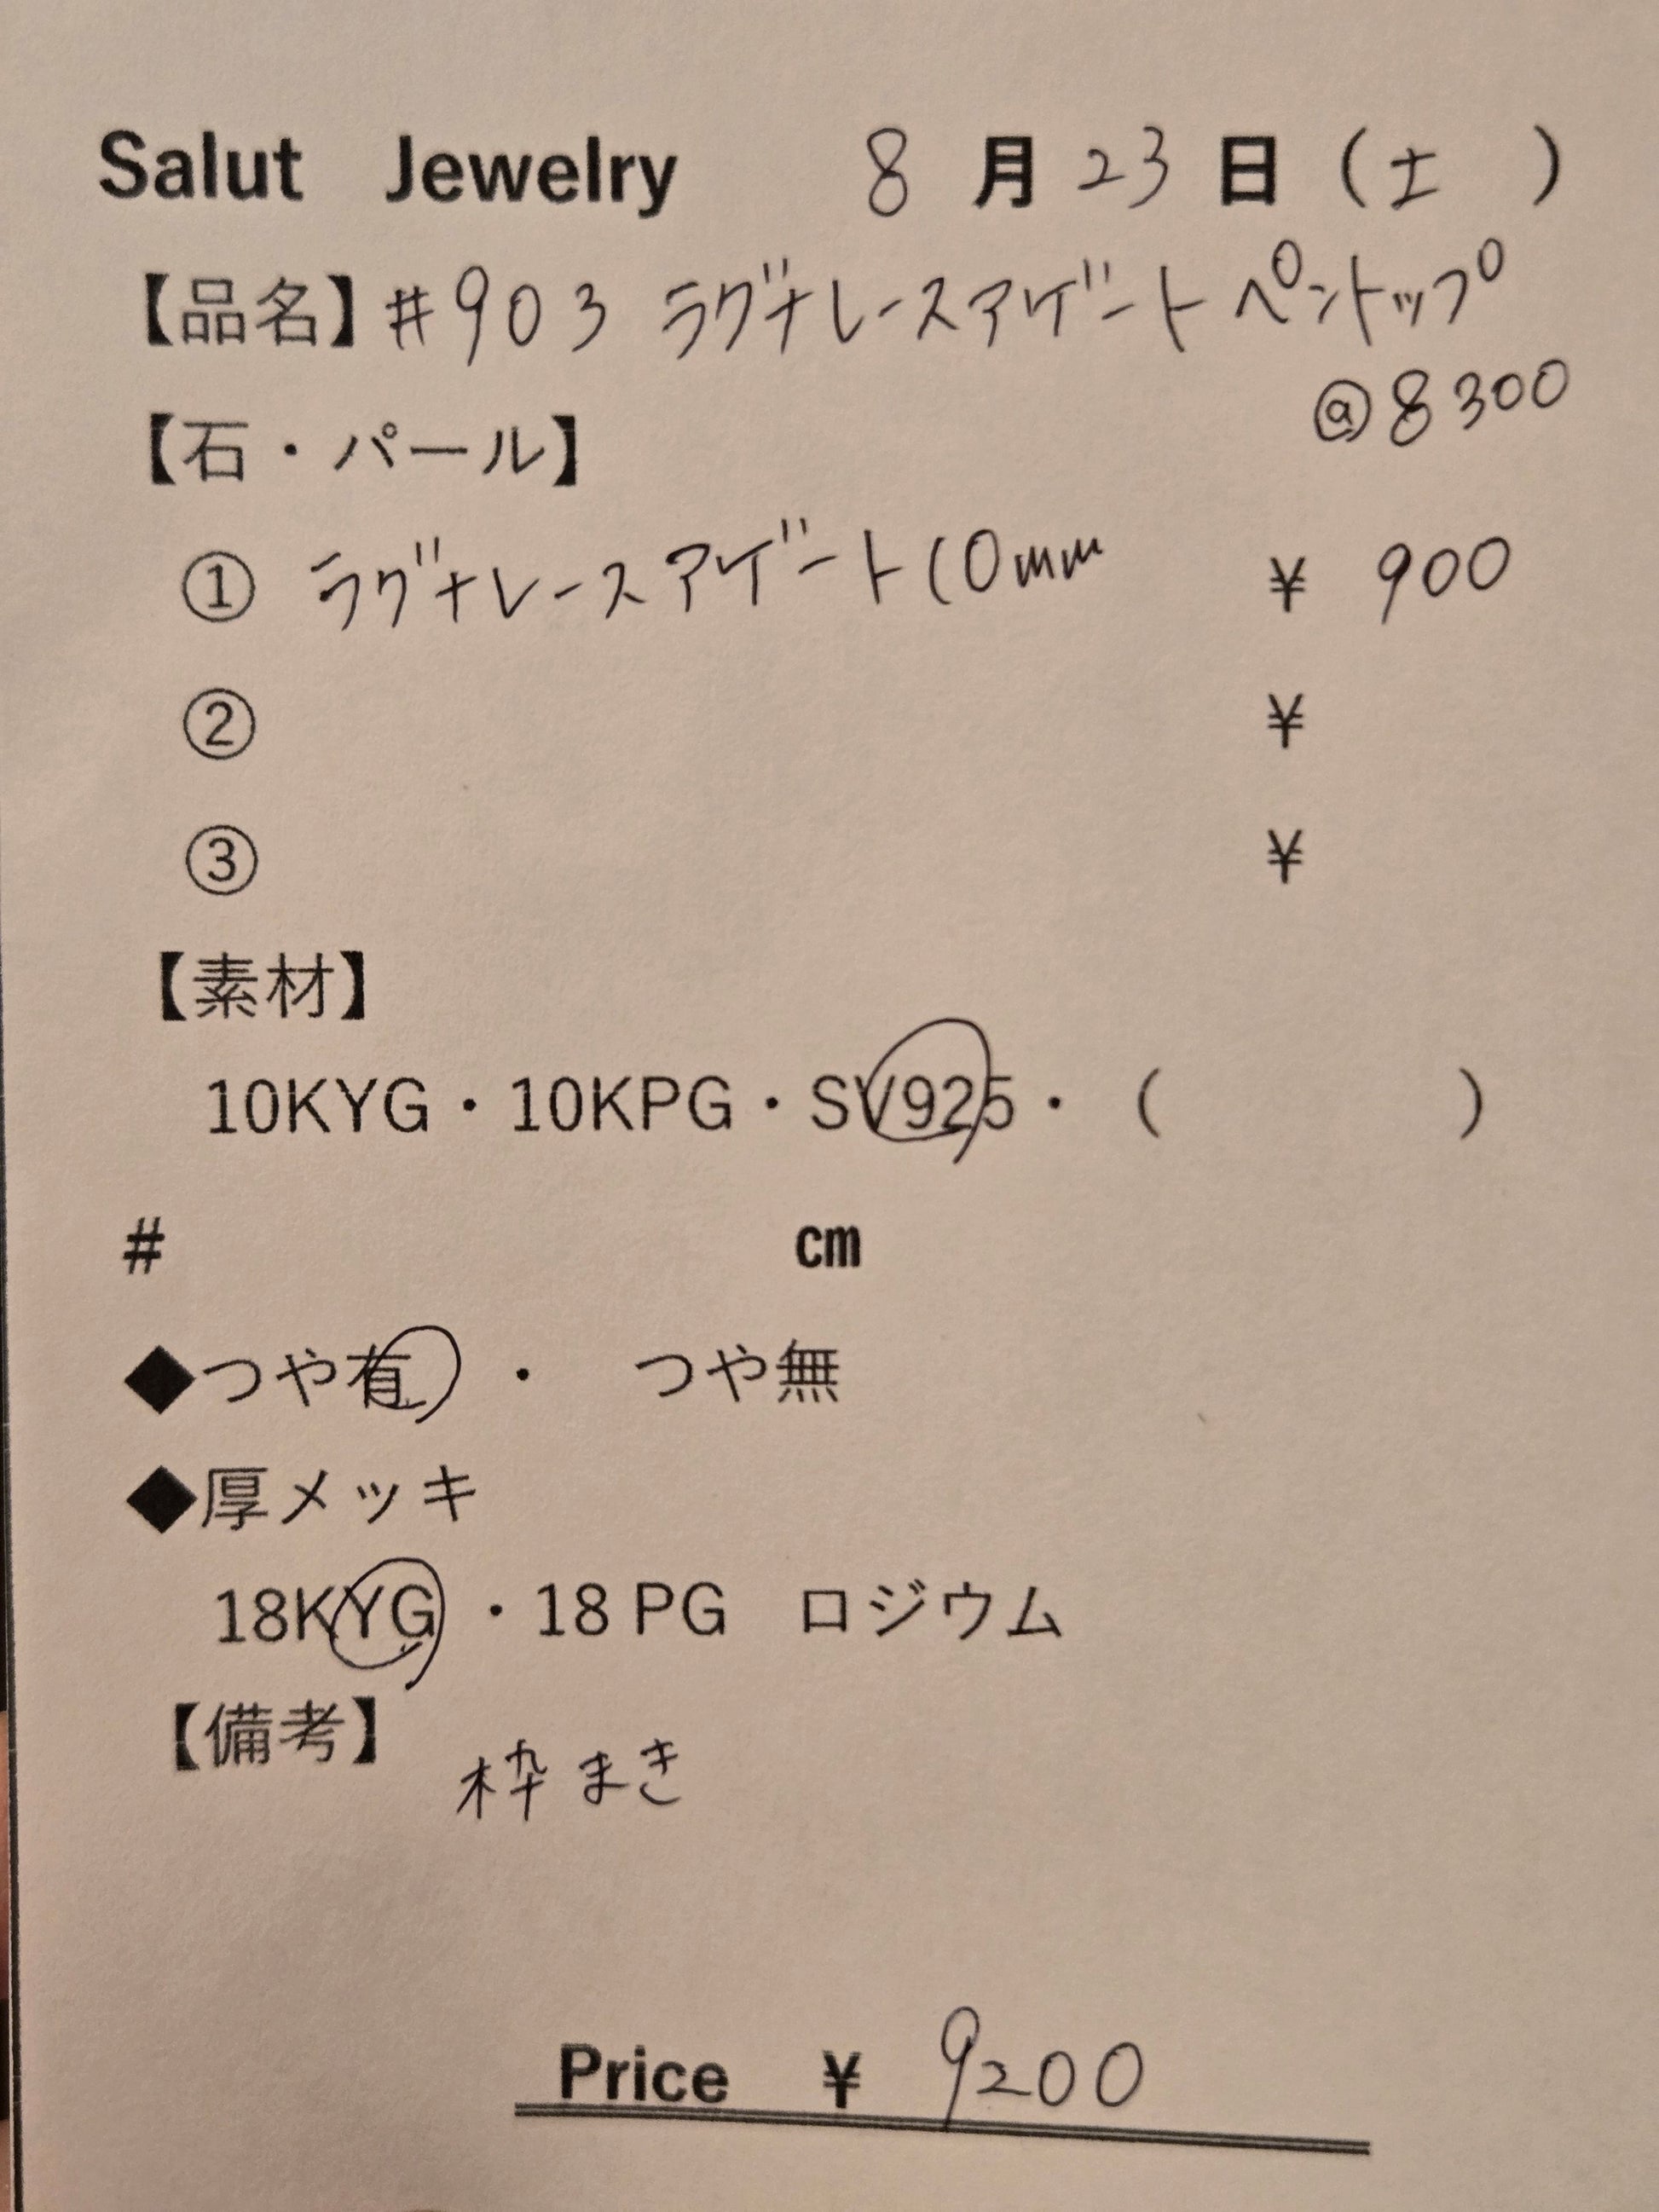 Salut Jewelry 8月23日(土)
【品名】#903 ラグナレースアゲートペントップ
@8300
【石・パール】
① ラグナレースアゲート10mm ¥900
② ¥
③ ¥
【素材】
10KYG・10KPG・SV925・( )
# cm
◆つや有 ・ つや無
◆厚メッキ
18KYG ・18 PG ロジウム
【備考】
枠まき
Price ¥ 9200